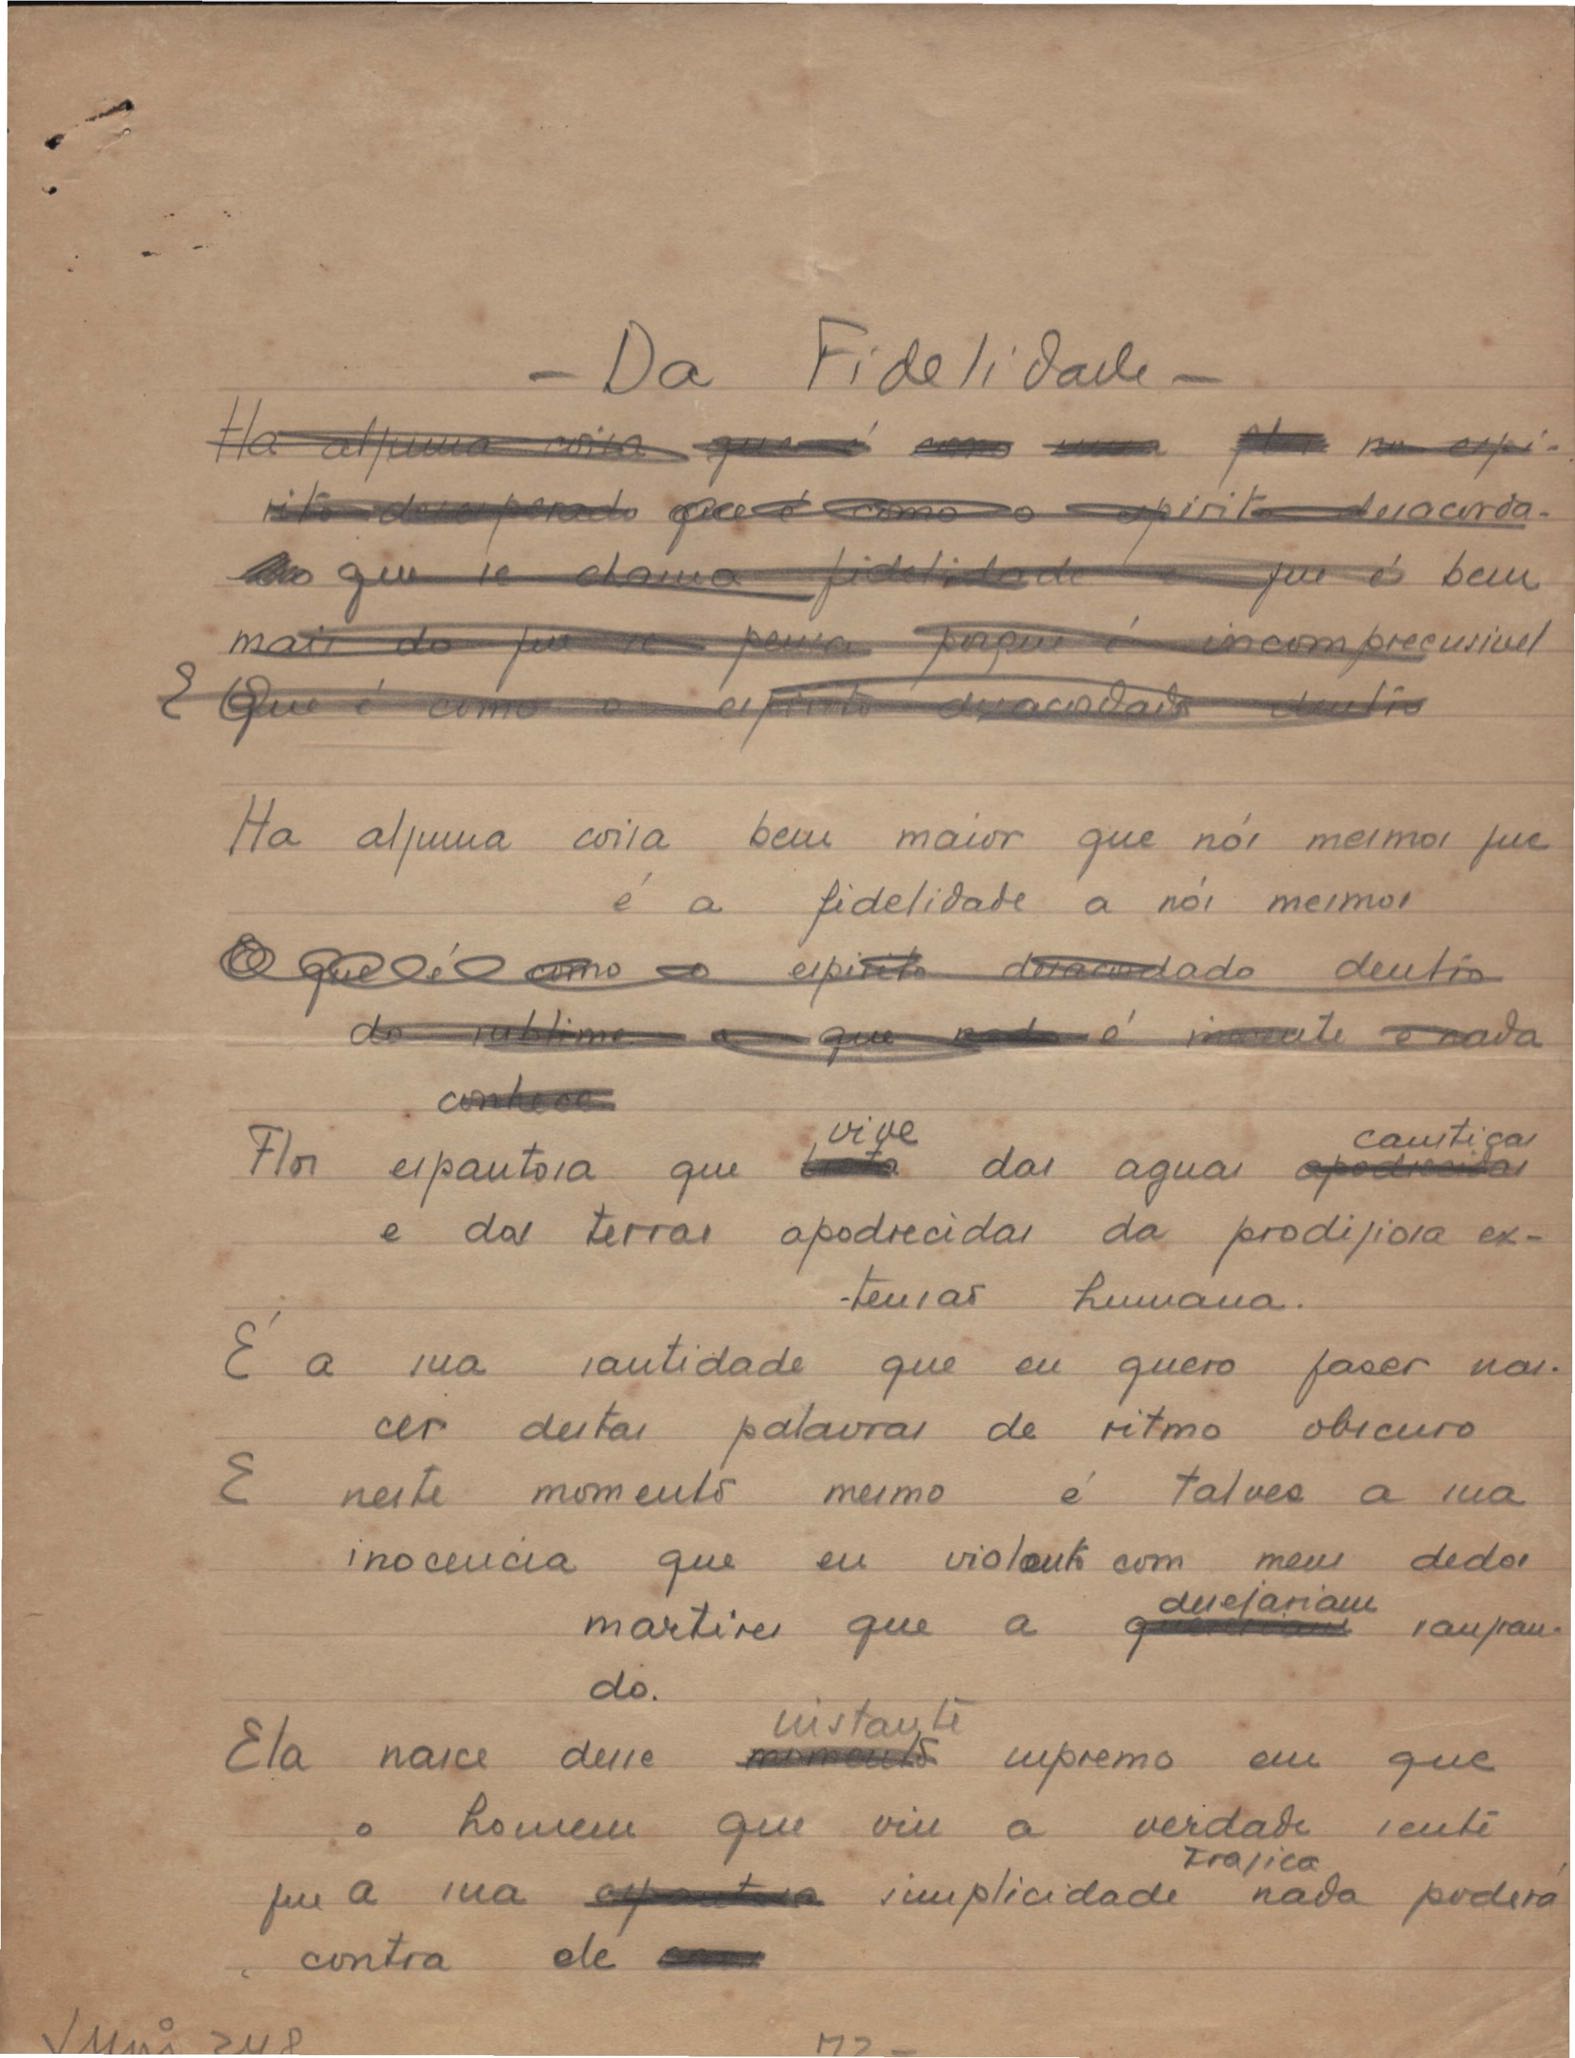 - Da Fidelidade -
Ha alguma coisa que é como uma flor no espi-
rito desesperado que é como o espirito desacorda-
do que se chama fidelidade e que é bem
mais do que se pensa porque é incompreensivel
E Que é como o espirito desacordado dentro
Ha alguma coisa bem maior que nós mesmos que
é a fidelidade a nós mesmos
O que é como o espirito desacordado dentro
do sublime e que nada é inocente e nada
conhece
vive causticas
Flor espantosa que brota das aguas apodrecidas
e das terras apodrecidas da prodigiosa ex-
-tensão humana.
É a sua santidade que eu quero faser nas-
cer destas palavras de ritmo obscuro
E neste momento mesmo é talvez a sua
inocencia que eu violento com meus dedos
desejariam
martires que a quereriam sangran-
do.
instante
Ela nasce desse momento supremo em que
o homem que viu a verdade sente
tragica
que a sua espantosa simplicidade nada poderá
contra ele